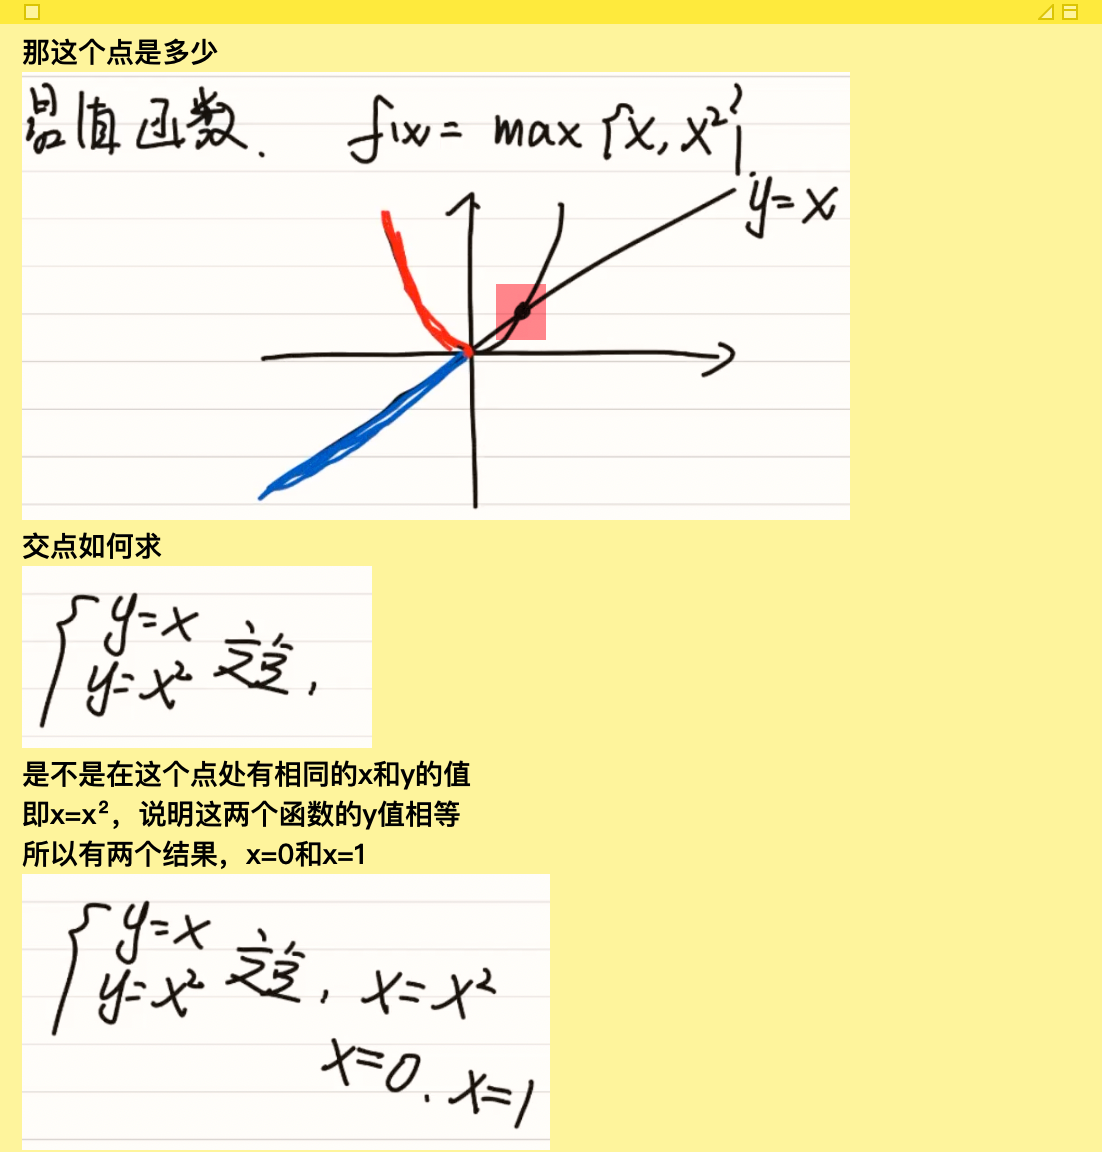 那这个点是多少
最值函数. f(x)= max {x, x²}
y=x
交点如何求
{ y=x
y=x² 交点,
是不是在这个点处有相同的x和y的值
即x=x²，说明这两个函数的y值相等
所以有两个结果，x=0和x=1
{ y=x
y=x² 交点, x=x²
x=0. x=1